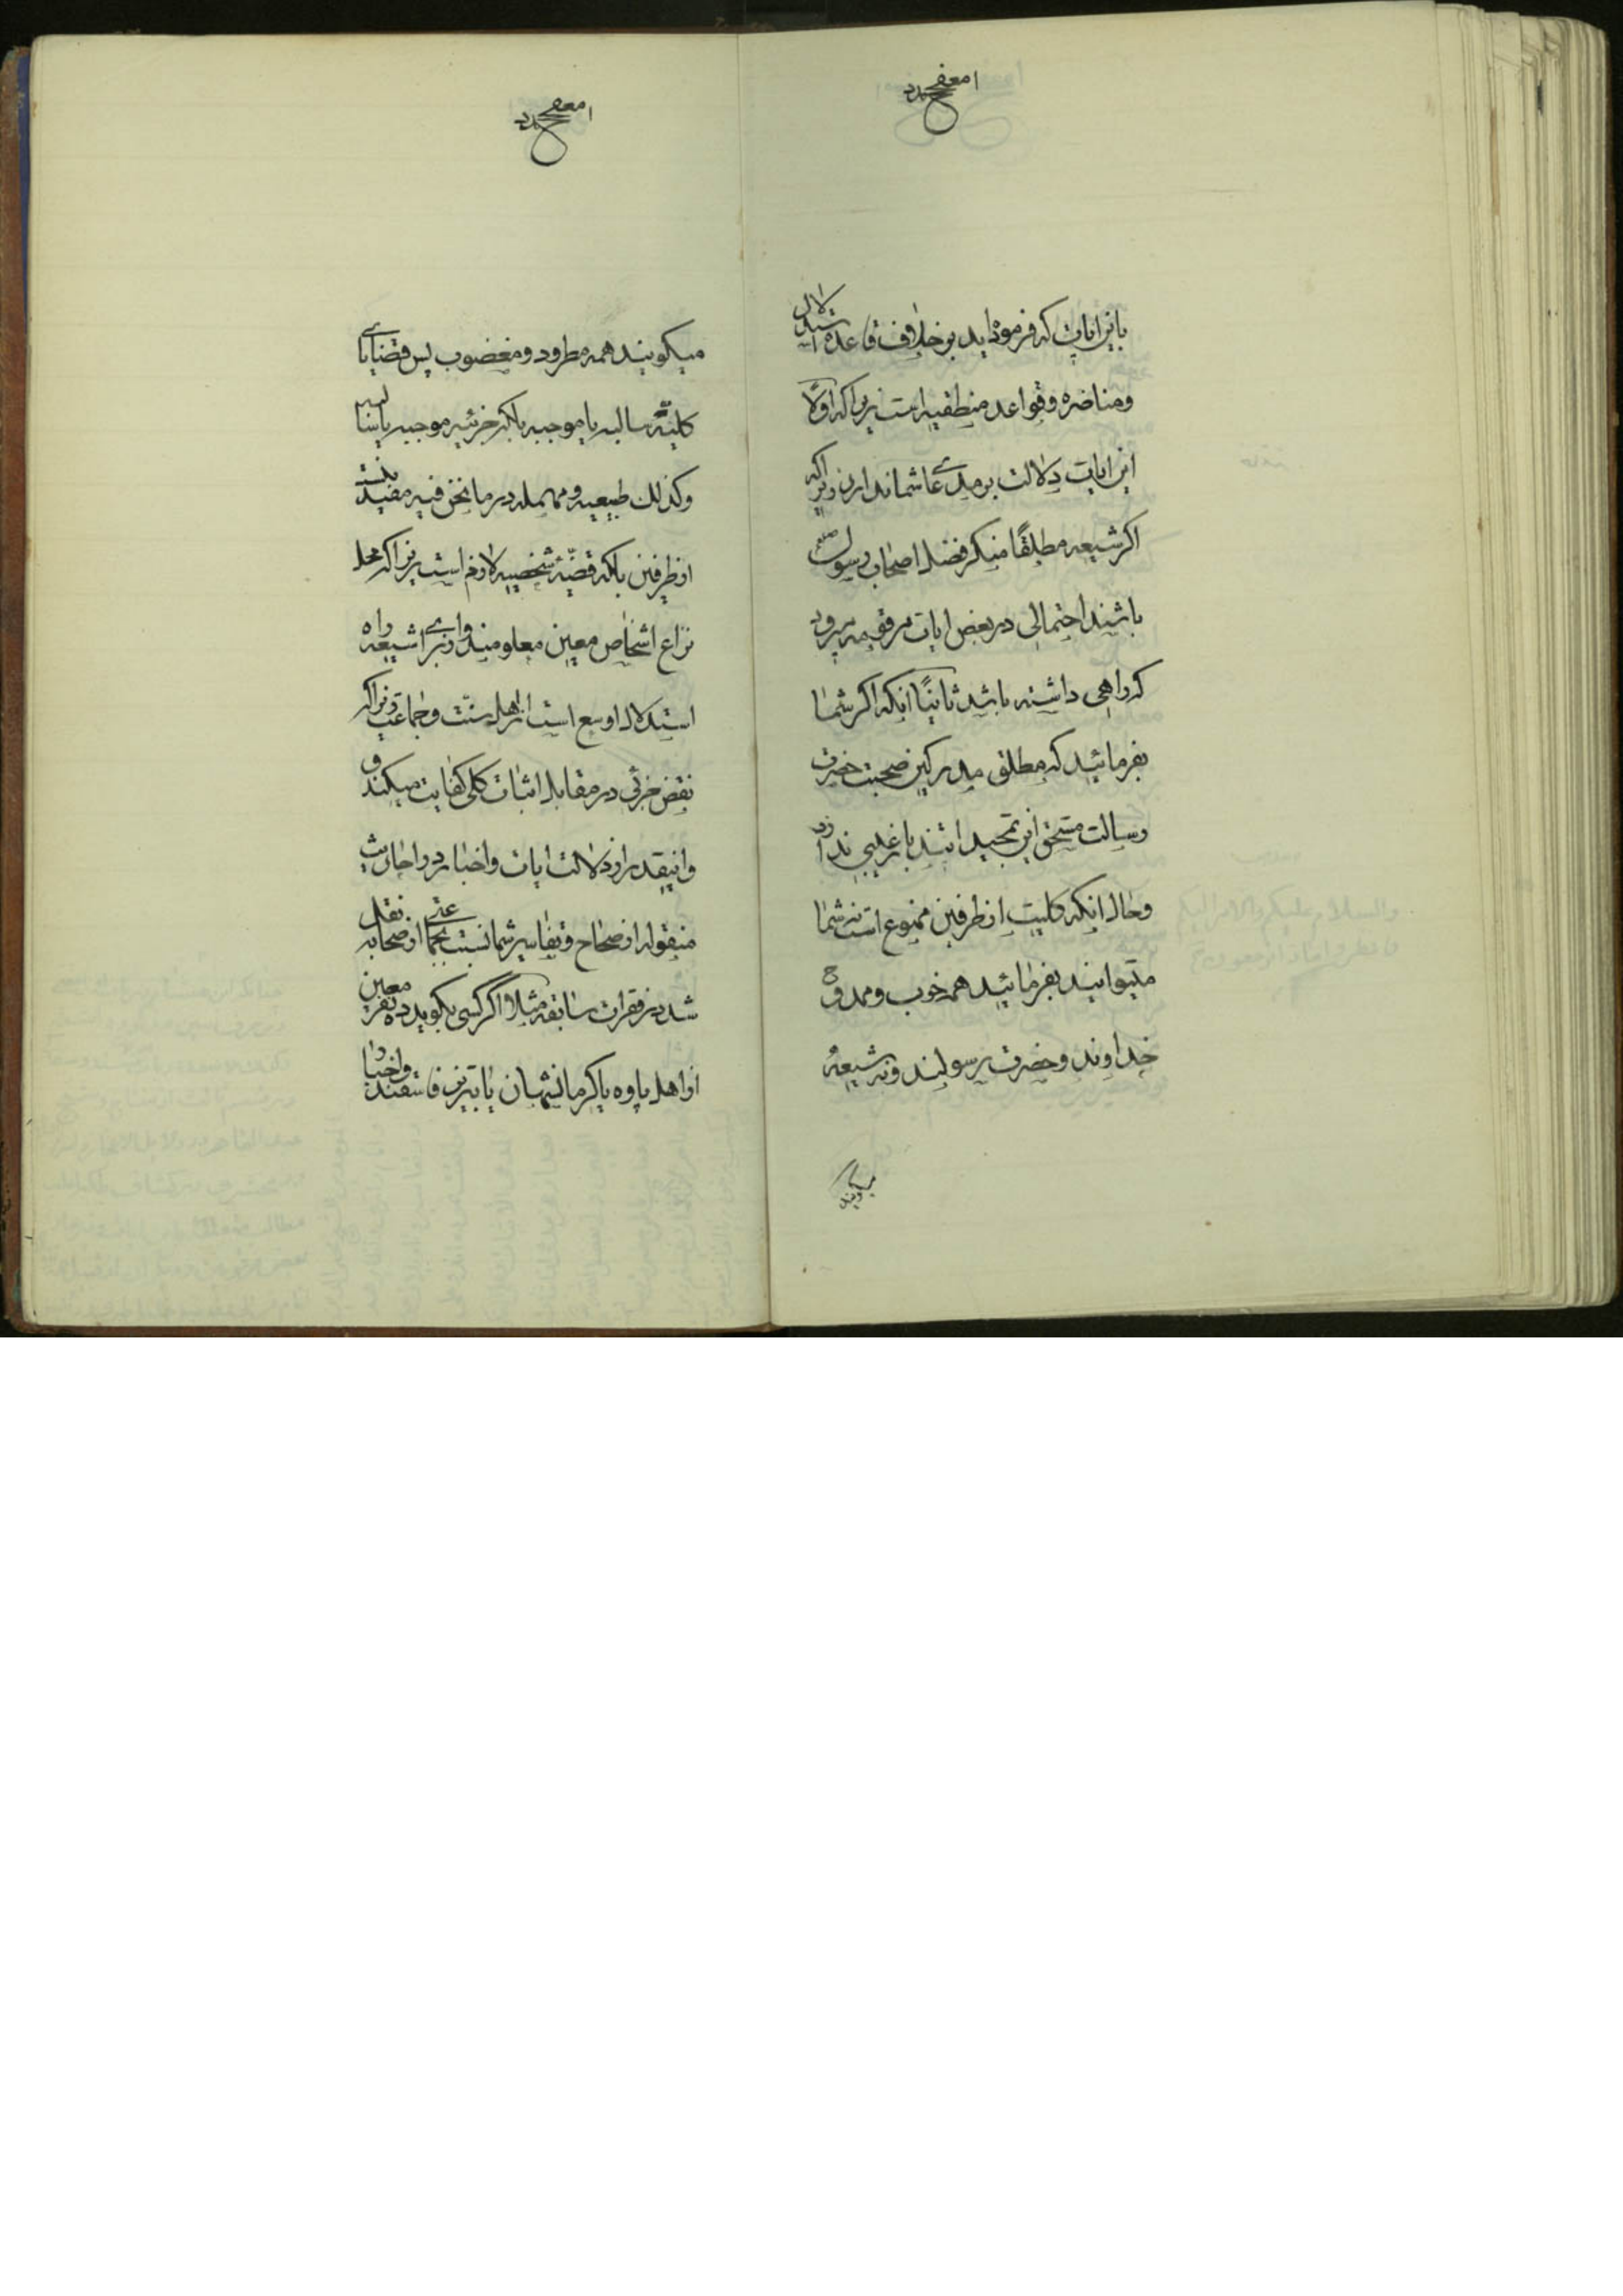 باین ایات که فرموده‌اید بر خلاف قاعده استدلال
ومناضره وقواعد منطقیه است زیراکه اولا
این ایات دلالت بر مدعای شما ندارد زیراکه
اکر شیعه مطلقًا منکر فضل اصحاب رسول
باشند احتمالی در بعض ایات مرقومه میرود
که راهی داشته باشد ثانیًا انکه اکر شما
بفرمائید که مطلق مدرکین صحبت حضرت
رسالت مستحق این تمجید اتند باز عیبی ندارد
وحال انکه کلیت از طرفین ممنوع است نه شما
میتوانید بفرمائید همه خوب وممدوح
خداوند وحضرت رسولند ونه شیعه
میکویند
میکویند همه مطرود ومغضوب پس قضایای
کلیّه سالبه یا موجبه بلکه جزئیه موجبه یا سالبه
وکذلک طبیعیه ومهمله در ما نحن فیه مفید نیست
از طرفین بلکه قضیّه شخصیه لازم است زیراکه محل
نزاع اشخاص معین معلومند وبرای شیعه راه
استدلال اوسع است از اهل سنت وجماعت زیراکه
نقض جزئی در مقابل اثبات کلی کفایت میکند و
واینقدر از دلالت ایات واخبار واحادیث
منقوله از صحاح وتفاسیر شما نسبت بجماعتی از صحابه نقل
شد در فقرات سابقه مثلا اگر کسی بکوید ده نفر معین
از اهل پاوه یا کرمانشهان یا تبریز فاسقند